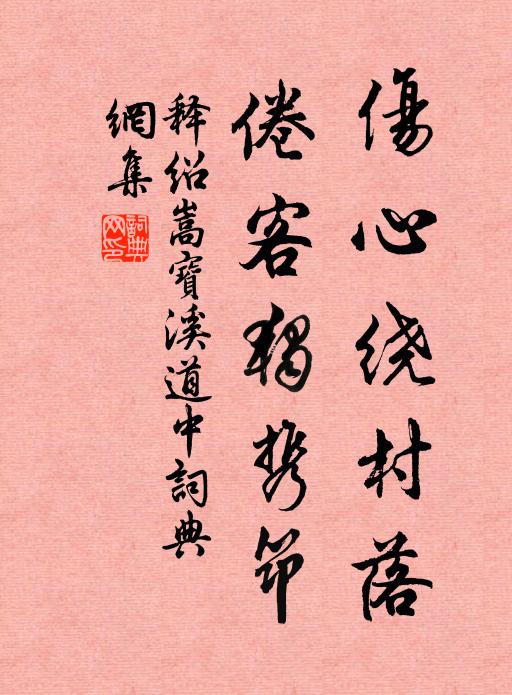 傷心绕村落
倦客獨携笻
释绍嵩寶溪道中詞典
網集
詞典网印